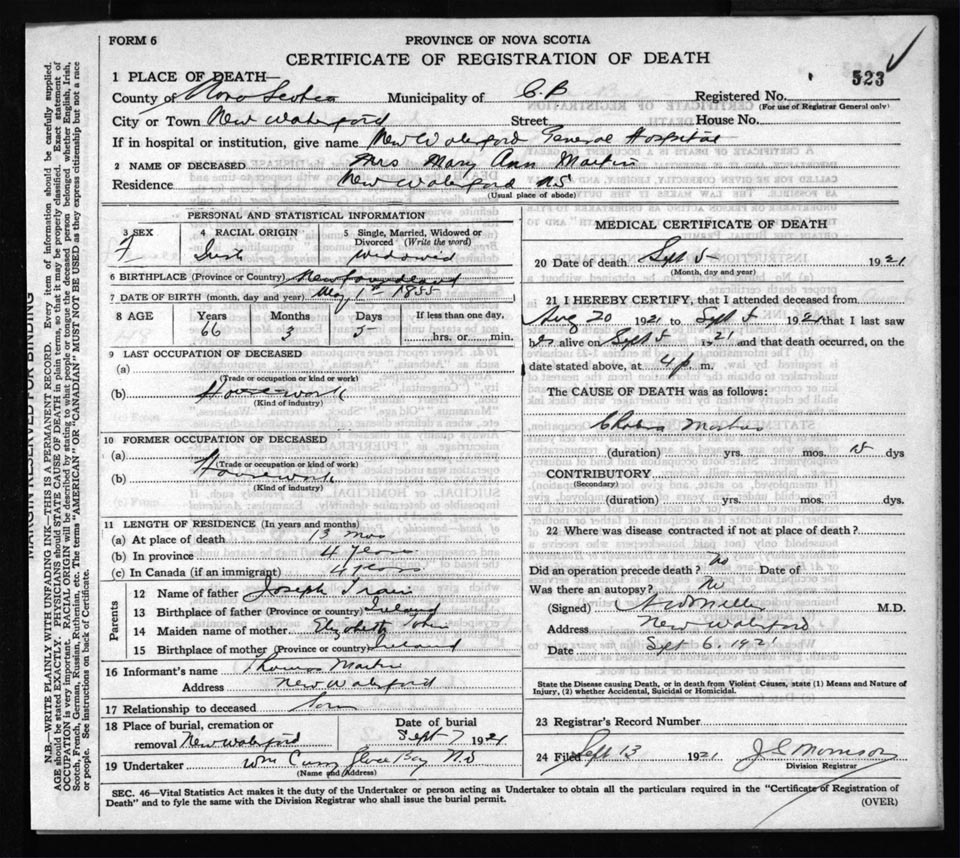 FORM 6
PROVINCE OF NOVA SCOTIA
CERTIFICATE OF REGISTRATION OF DEATH
523
1 PLACE OF DEATH—
County of Nova Scotia Municipality of C.B Registered No.
(For use of Registrar General only)
City or Town New Waterford Street House No.
If in hospital or institution, give name New Waterford General Hospital
2 NAME OF DECEASED Mrs Mary Ann Martin
Residence New Waterford NS
(Usual place of abode)
PERSONAL AND STATISTICAL INFORMATION
3 SEX
4 RACIAL ORIGIN
5 Single, Married, Widowed or Divorced (Write the word)
F Irish Widowed
6 BIRTHPLACE (Province or Country) Newfoundland
7 DATE OF BIRTH (month, day and year) May 1st 1855
8 AGE Years Months Days If less than one day,
66 3 5 hrs. or min.
9 LAST OCCUPATION OF DECEASED
(a)
(Trade or occupation or kind or work)
(b) Housework
(Kind of industry)
10 FORMER OCCUPATION OF DECEASED
(a)
(Trade or occupation or kind or work)
(b) Housework
(Kind of industry)
11 LENGTH OF RESIDENCE (In years and months)
(a) At place of death 13 mos
(b) In province 4 years
(c) In Canada (if an immigrant) 4 years
Parents
12 Name of father Joseph
13 Birthplace of father (Province or country) Ireland
14 Maiden name of mother Elizabeth
15 Birthplace of mother (Province or country) Ireland
16 Informant's name Thomas Martin
Address New Waterford
17 Relationship to deceased Son
18 Place of burial, cremation or removal New Waterford
Date of burial Sept 7 1921
19 Undertaker Wm Glace Bay
(Name and Address)
MEDICAL CERTIFICATE OF DEATH
20 Date of death Sept 5 1921
(Month, day and year)
21 I HEREBY CERTIFY, that I attended deceased from
Aug 20 1921 to Sept 5 1921 that I last saw
her alive on Sept 5 1921 and that death occurred, on the
date stated above, at 4 p m.
The CAUSE OF DEATH was as follows:
Cholera Morbus
(duration) yrs. mos. dys
CONTRIBUTORY
(Secondary)
(duration) yrs. mos. dys.
22 Where was disease contracted if not at place of death?
Did an operation precede death? no Date of
Was there an autopsy? No
(Signed) M.D.
Address New Waterford
Date Sept 6, 1921
State the Disease causing Death, or in death from Violent Causes, state (1) Means and Nature of
Injury, (2) whether Accidental, Suicidal or Homicidal.
23 Registrar's Record Number
24 Filed Sept 13 1921 Morrison
Division Registrar
SEC. 46—Vital Statistics Act makes it the duty of the Undertaker or person acting as Undertaker to obtain all the particulars required in the "Certificate of Registration of
Death" and to fyle the same with the Division Registrar who shall issue the burial permit.
(OVER)
MARGIN RESERVED FOR BINDING
N.B.—WRITE PLAINLY WITH UNFADING INK—THIS IS A PERMANENT RECORD. Every item of information should be carefully supplied.
AGE should be stated EXACTLY. PHYSICIANS should STATE CAUSE OF DEATH in plain terms, so that it may be properly classified. Exact statement of
OCCUPATION is very important. RACIAL ORIGIN will be described by stating to what people or tongue the deceased person belonged whether English, Irish,
Scotch, French, German, Russian, Ruthenian, etc. The terms "AMERICAN" OR "CANADIAN" MUST NOT BE USED as they express citizenship but not a race
or people. See instructions on back of Certificate.